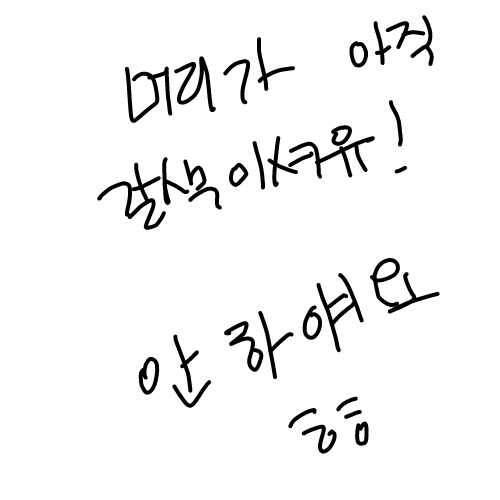 머리가 아직
갈색이셔유!
안 하얘요
ㅎㅎ